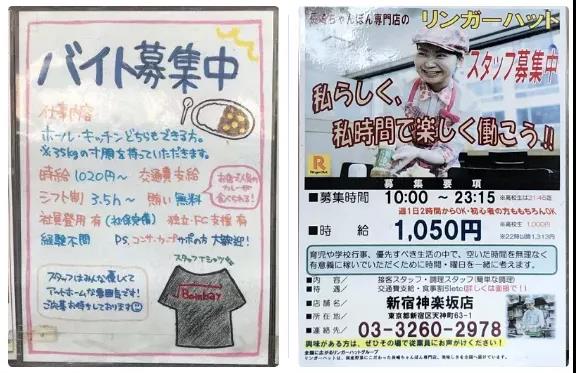 バイト募集中
仕事内容
ホール・キッチンどちらもできる方。
時給 1020円〜 交通費支給
シフト制 3.5h〜 賄い無料
お店で人気の
カレーが
食べられる!
社員登用有(社保完備) 独立・FC支援有
経験不問
大歓迎!
スタッフはみんな優しくて
アットホームな雰囲気です!
ご応募お待ちしております
スタッフTシャツ
Bombay
長崎ちゃんぽん専門店の リンガーハット
スタッフ募集中
私らしく、
私時間で楽しく働こう!!
R
募集要項
■募集時間 10:00 〜 23:15 ※高校生は21:45迄
週1日2時間からOK・初心者の方ももちろんOK
■時給 1,050円 ※高校生 1,000円
※22時以降1,313円
育児や学校行事、優先すべき生活の中で、空いた時間を無理なく
有意義に稼いでいただくために時間・曜日を一緒に考えます。
■内容 接客スタッフ・調理スタッフ(簡単な調理)
■待遇 交通費支給・食事割引etc(詳しくは面接で!!)
■店舗名 新宿神楽坂店
■所在地 東京都新宿区天神町63-1
■連絡先 03-3260-2978
興味がある方は、ぜひその場で従業員にお声がけください!
全国に広がるリンガーハットグループ